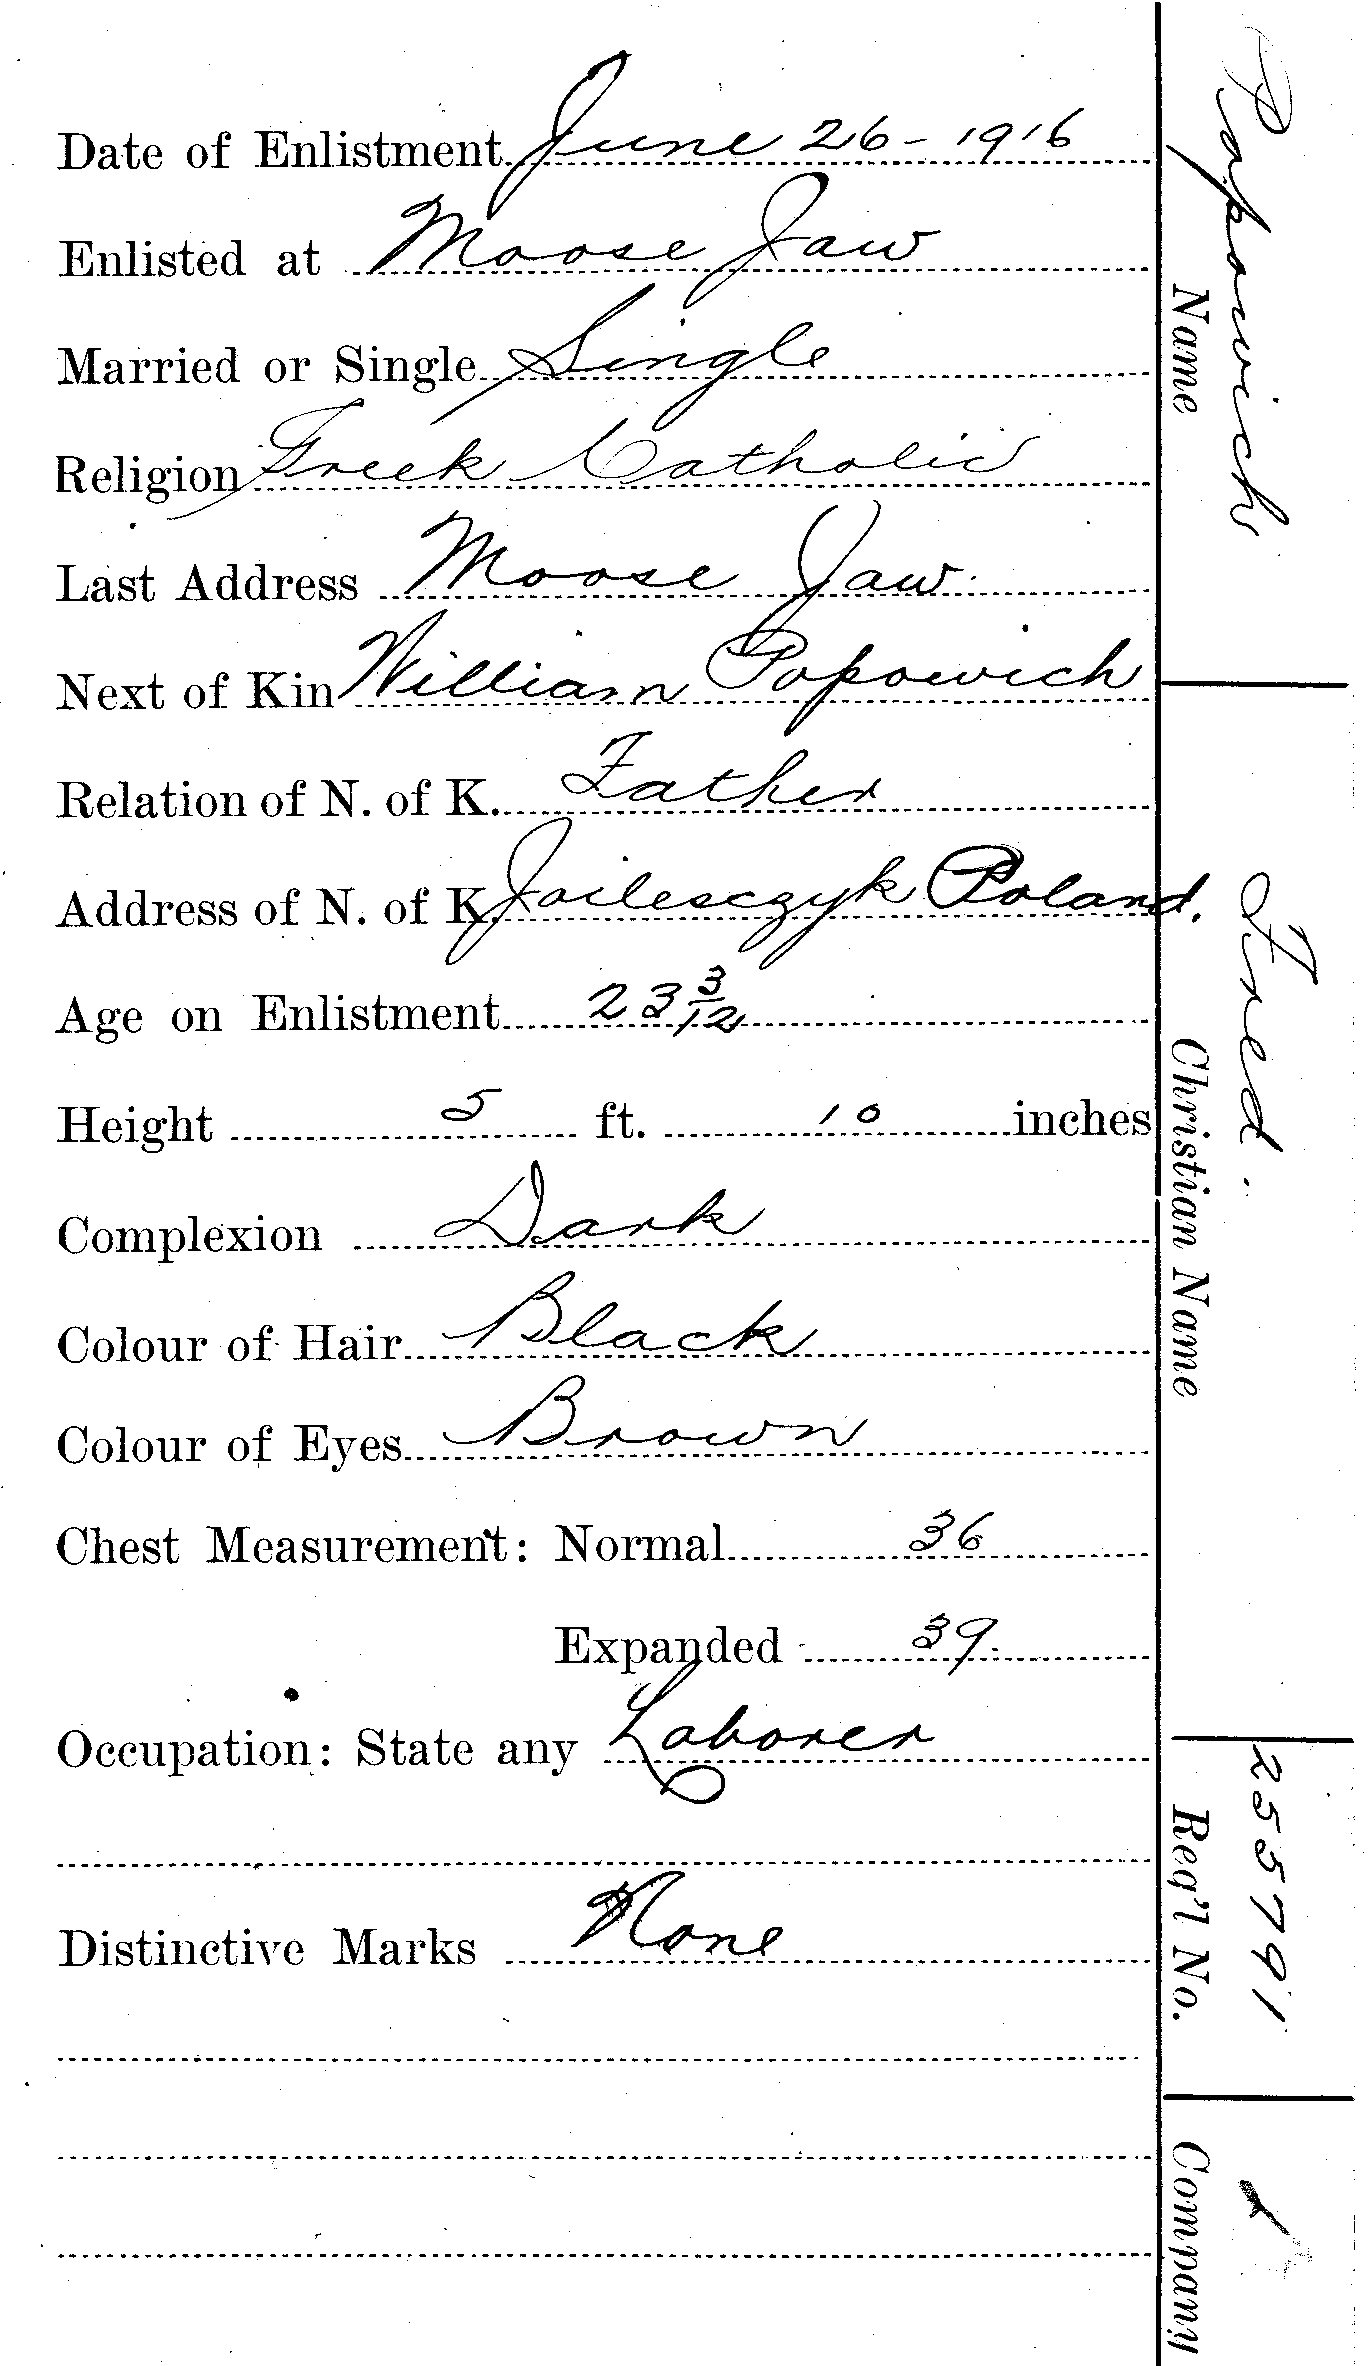 Date of Enlistment June 26 - 1916
Enlisted at Moose Jaw
Married or Single Single
Religion Greek Catholic
Last Address Moose Jaw.
Next of Kin William Popowich
Relation of N. of K. Father
Address of N. of K. Poland.
Age on Enlistment 23 3/12
Height 5 ft. 10 inches
Complexion Dark
Colour of Hair Black
Colour of Eyes Brown
Chest Measurement: Normal 36
Expanded 39.
Occupation: State any Laborer
Distinctive Marks None
Popowich
Name
Fred.
Christian Name
255791
Reg'l No.
Company